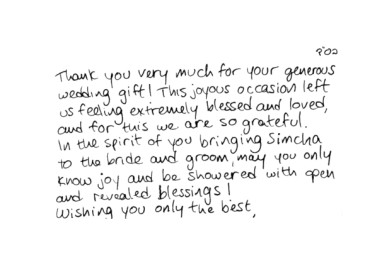 Thank you very much for your generous
wedding gift! This joyous occasion left
us feeling extremely blessed and loved,
and for this we are so grateful.
In the spirit of you bringing Simcha
to the bride and groom, may you only
know joy and be showered with open
and revealed blessings!
Wishing you only the best,